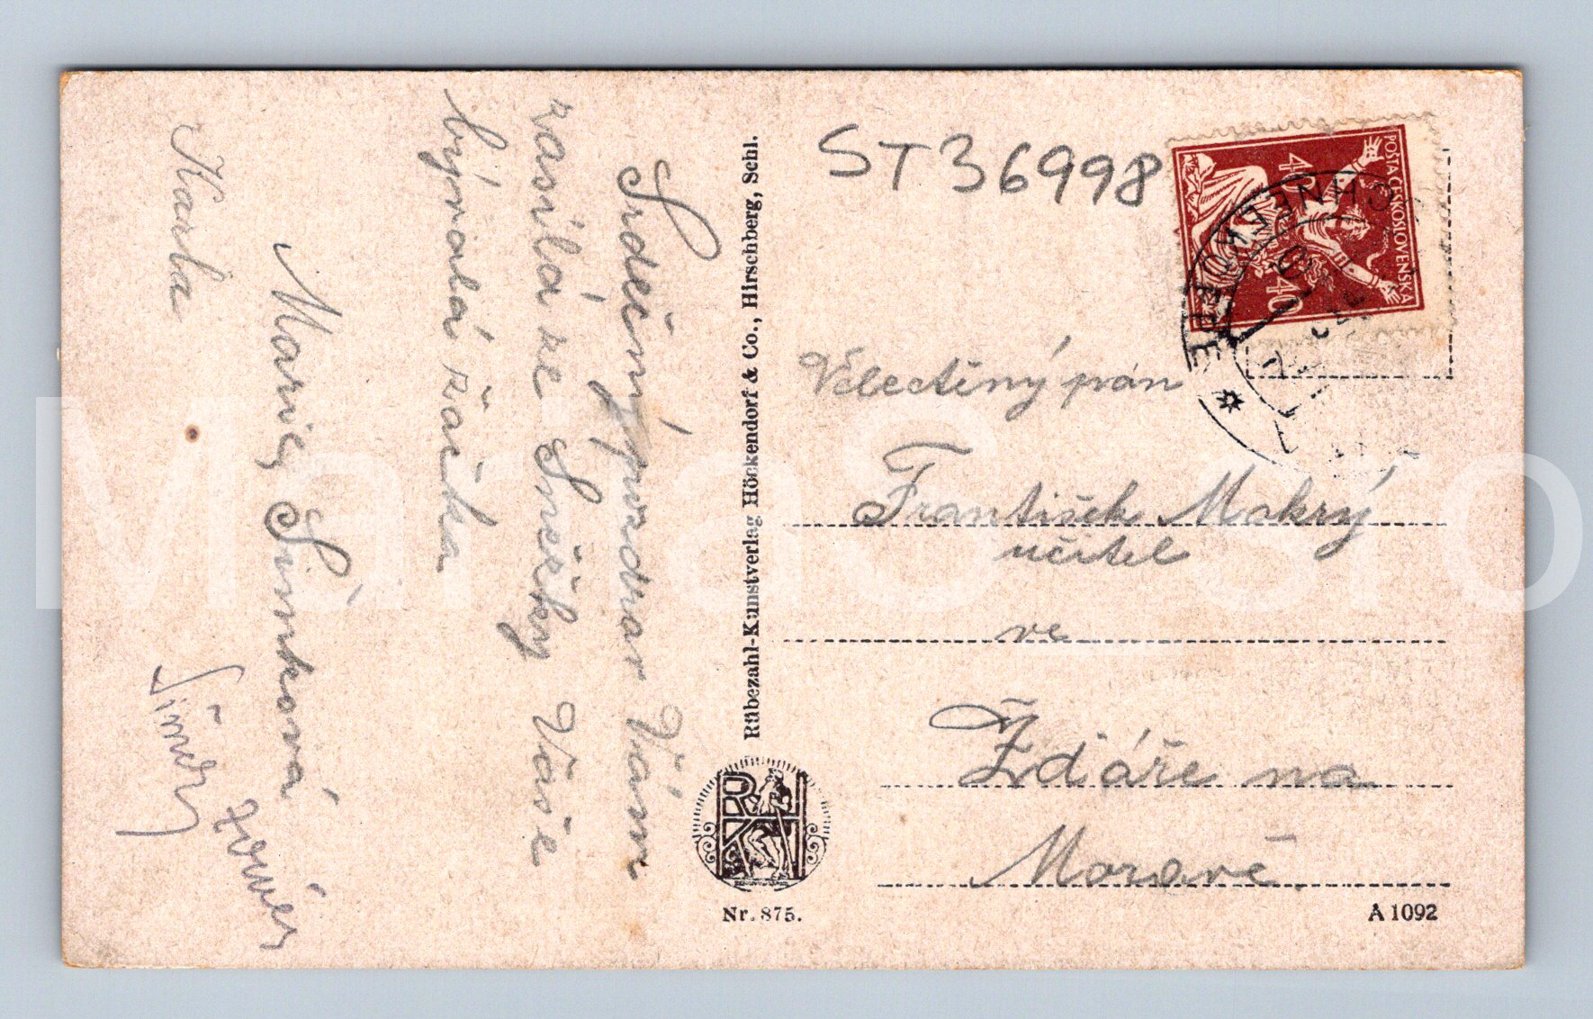 Srdečný pozdrav Vám
zasílá ze Sněžky Vaše
bývalá žačka
Marie Šimková
Karla
Rübezahl-Kunstverlag Höckendorf & Co., Hirschberg, Schl.
RKH
Nr. 875.
ST36998
POŠTA ČESKOSLOVENSKÁ
40 40
Velectěný pán
František Mokrý
učitel
ve
Ždáře na
Moravě.
A 1092
MaraS s.r.o